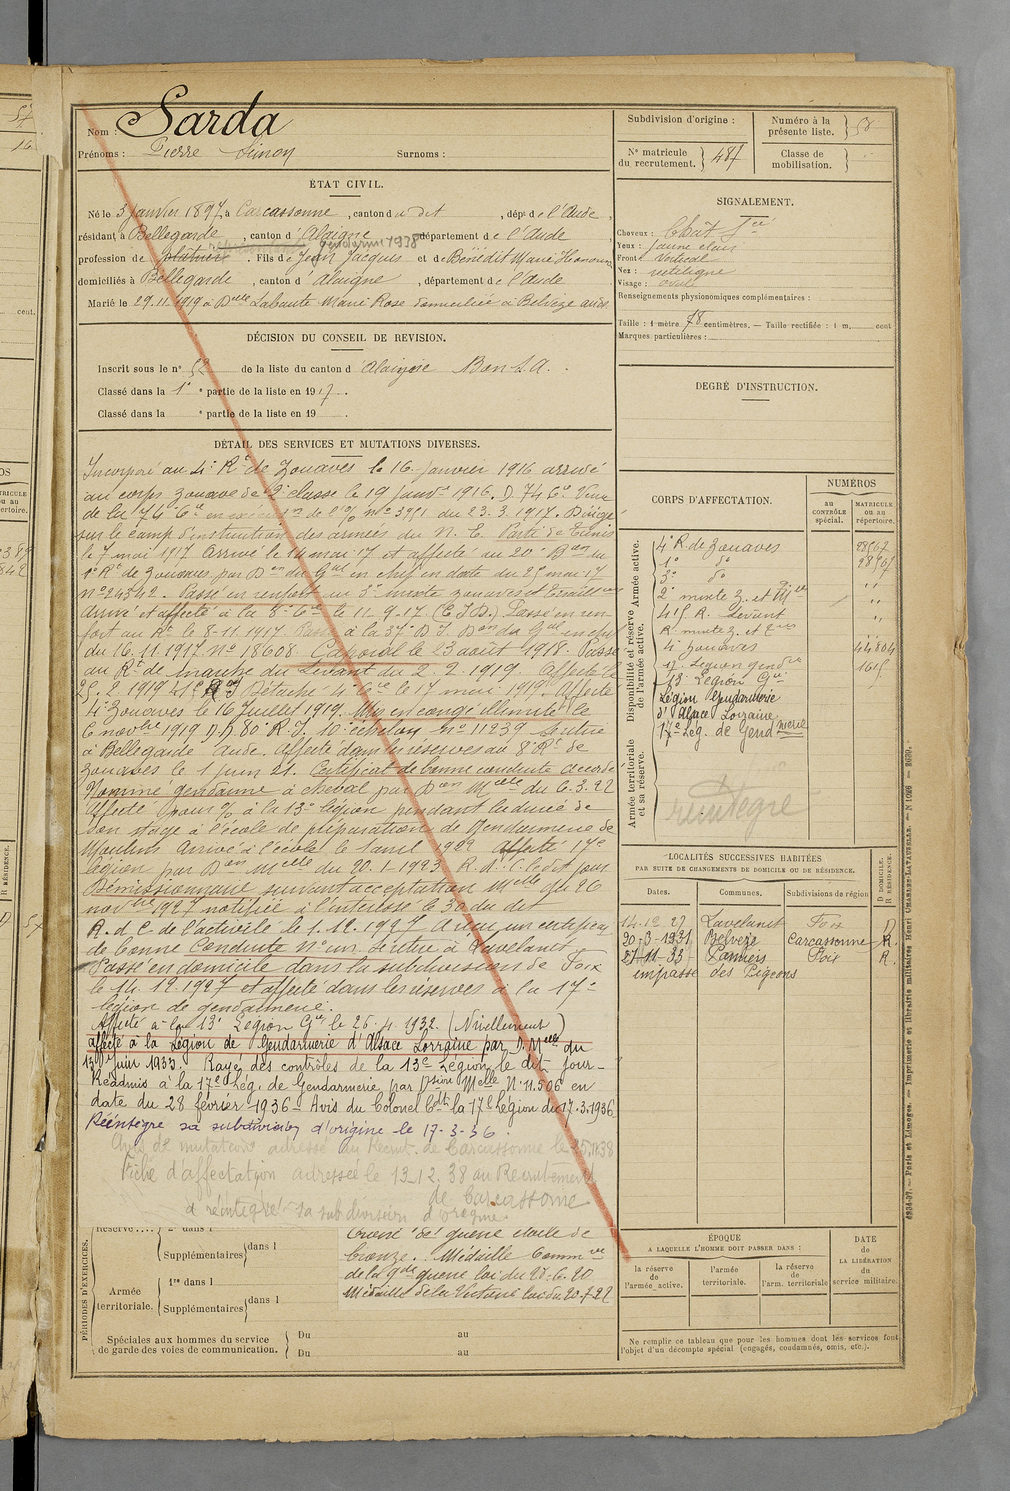 Nom : Sarda
Prénoms : Pierre Simon Surnoms :
ÉTAT CIVIL.
Né le 3 janvier 1897, à Carcassonne, canton du dit, dépt de l'Aude,
résidant à Bellegarde, canton d'Alaigne, département de l'Aude
gendarme 1938
profession de platrier. Fils de Jean Jacques et de Bénédit Marie Honorine
domiciliés à Bellegarde, canton d'Alaigne, département de l'Aude
Marié le 29.11.1919 à Delle Labaute Marie Rose domiciliée à Belvèze aude
DÉCISION DU CONSEIL DE REVISION.
Inscrit sous le n° 52 de la liste du canton d'Alaigne Bon S.A.
Classé dans la 1e partie de la liste en 1917.
Classé dans la e partie de la liste en 19 .
DÉTAIL DES SERVICES ET MUTATIONS DIVERSES.
Incorporé au 4e Rt de Zouaves le 16 janvier 1916 arrivé
au corps zouave de 2e classe le 19 janvr 1916. D. 74 Cie Venu
de la 74e Cie en exécution de l'O/ n° 3951 du 23.3.1917. Dirigé
sur le camp d'instruction des armées du N. E. Parti de Tunis
le 7 mai 1917 Arrivé le 14 mai 17 et affecté au 20e Bon du
1e Rt de Zouaves par Don du Gal en chef en date du 25 mai 17
n° 24342. Passé en renfort au 3e mixte zouaves et tirailleurs
Arrivé et affecté à la 8e Cie le 11.9.17 (C.I.D.) Passé en ren-
fort au Rt le 8-11.1917 Passé à la 37e D.I. Don du Gal en chef
du 16.11.1917 N° 18608. Caporal le 23 août 1918. Passé
au Rt de marche du Levant du 2.2.1919. Affecté le
25.2.1919 415e R.I Détaché 4e Cie le 17 mai 1919. Affecté
4e Zouaves le 16 Juillet 1919. Mis en congé illimité le
6 novbre 1919 D.D. 80e R.I. 10e échelon n° 11239 Se retire
à Bellegarde Aude. Affecté dans les réserves au 8e Rt de
Zouaves le 1 juin 21. Certificat de bonne conduite accordé
Nommé gendarme à cheval par Don Melle du 6.3.22
Affecté pour O/ à la 13e légion pendant la durée de
son stage à l'école de préparation de Gendarmerie de
Moulins Arrivé à l'école le 1 avril 1922 affecté 17e
légion par Don Melle du 20.1.1923 R.d.C. le dit jour
Démissionnaire suivant acceptation Melle du 26
novbre 1927 notifiée à l'intéressé le 30 du dit
R. d. C. de l'activité le 1.12.1927 A reçu un certificat
de bonne Conduite N° un. Se retire à Lavelanet
Passé en domicile dans la subdivision de Foix
le 14.12.1927 et affecté dans les réserves à la 17e
légion de gendarmerie.
Affecté à la 13e Légion Gie le 26.4.1932. (Nivellement)
affecté à la Légion de Gendarmerie d'Alsace Lorraine par D. Melle du
13 Juin 1933. Rayé des contrôles de la 13e Légion le dit jour-
Réadmis à la 17e Lég. de Gendarmerie par Dsion Melle N° 11.506 en
date du 28 février 1936 - Avis du Colonel Cdt la 17e Légion du 17.3.1936
Réintègre sa subdivision d'origine le 17.3.36.
Avis de mutation adressé au Recrut. de Carcassonne le 25.11.38
Fiche d'affectation adressée le 13.12.38 au Recrutement
de Carcassonne
a réintégré sa subdivision d'origine
PÉRIODES D'EXERCICES.
Supplémentaires dans l
Armée territoriale.
1re dans l
Supplémentaires dans l
Croix de guerre étoile de
bronze. Médaille Commve
de la gde guerre loi du 23.6.20
Médaille de la Victoire loi du 20.7.22
Spéciales aux hommes du service
de garde des voies de communication.
Du au
Du au
Subdivision d'origine :
Numéro à la présente liste. 58
N° matricule du recrutement. 487
Classe de mobilisation.
SIGNALEMENT.
Cheveux : Chât fcé
Yeux : Jaune clair
Front : Vertical
Nez : rectiligne
Visage : ovale
Renseignements physionomiques complémentaires :
Taille : 1 mètre 78 centimètres. — Taille rectifiée : 1 m. cent
Marques particulières :
DEGRÉ D'INSTRUCTION.
CORPS D'AFFECTATION.
NUMÉROS
au CONTRÔLE spécial.
MATRICULE ou au répertoire.
Disponibilité et réserve de l'armée active.
Armée active.
4e R. de Zouaves
1e do 28567
3e do "
2e mixte Z. et "
415 R. "
R. mixte Z. et
4e Zouaves 44804
17 Légion Gendrie 1615
13 Légion Gie
Légion Gendarmerie
d'Alsace Lorraine
17e Lég. de Gendmerie
Armée territoriale et sa réserve.
réintégré
LOCALITÉS SUCCESSIVES HABITÉES
PAR SUITE DE CHANGEMENTS DE DOMICILE OU DE RÉSIDENCE.
Dates. Communes. Subdivisions de région D DOMICILE. R RÉSIDENCE.
14.12.27 Lavelanet Foix D
20-3-1931 Belvèze Carcassonne R.
27-11-33 Pamiers Foix R.
impasse des Pigeons
ÉPOQUE
A LAQUELLE L'HOMME DOIT PASSER DANS :
la réserve de l'armée active.
l'armée territoriale.
la réserve de l'arm. territoriale
DATE de LA LIBÉRATION du service militaire.
Ne remplir ce tableau que pour les hommes dont les services font
l'objet d'un décompte spécial (engagés, condamnés, omis, etc.).
Paris et Limoges. — Imprimerie et librairie militaires Henri CHARLES-LAVAUZELLE.